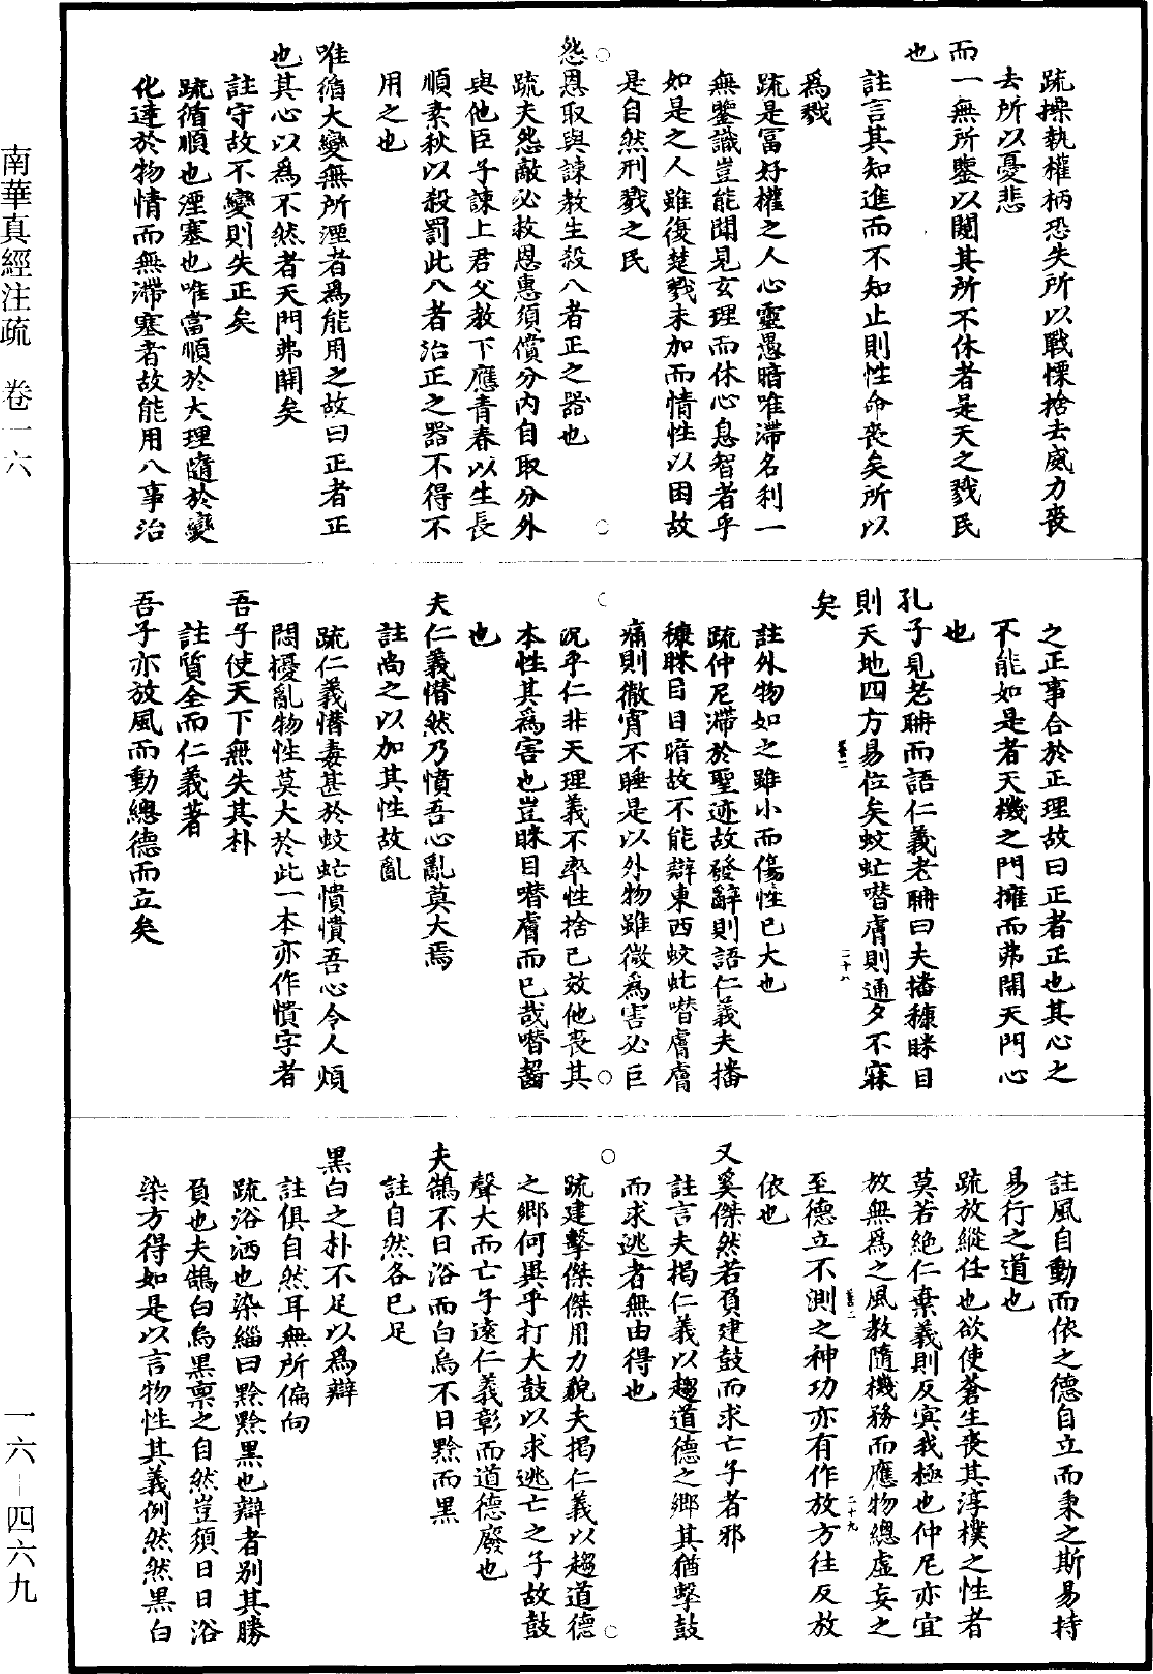 疏操執權柄恐失所以戰慄捨去威力喪
去所以憂悲
而一無所鑒以闚其所不休者是天之戮民
也
註言其知進而不知止則性命喪矣所以
爲戮
疏是富好權之人心靈愚暗唯滯名利一
無鑒識豈能聞見玄理而休心息智者乎
如是之人雖復楚戮未加而情性以困故
是自然刑戮之民
怨恩取與諫教生殺八者正之器也
疏夫怨敵必敘恩惠須償分內自取分外
與他臣子諫上君父教下應青春以生長
順素秋以殺罰此八者治正之器不得不
用之也
唯循大變無所湮者爲能用之故曰正者正
也其心以爲不然者天門弗開矣
註守故不變則失正矣
疏循順也湮塞也唯當順於大理隨於變
化達於物情而無滯塞者故能用八事治
之正事合於正理故曰正者正也其心之
不能如是者天機之門擁而弗開天門心
也
孔子見老聃而語仁義老聃曰夫播糠眯目
則天地四方易位矣蚊虻噆膚則通夕不寐
矣
註外物加之雖小而傷性已大也
疏仲尼滯於聖迹故發辭則語仁義夫播
糠眯目目暗故不能辯東西蚊虻噆膚膚
痛則徹宵不睡是以外物雖微爲害必巨
況乎仁非天理義不率性捨己效他喪其
本性其爲害也豈眯目噆膚而已哉噆齧
也
夫仁義憯然乃憤吾心亂莫大焉
註尚之以加其性故亂
疏仁義憯毒甚於蚊虻憤憤吾心令人煩
悶擾亂物性莫大於此一本亦作憒字者
吾子使天下無失其朴
註質全而仁義著
吾子亦放風而動總德而立矣
註風自動而依之德自立而秉之斯易持
易行之道也
疏放縱任也欲使蒼生喪其淳樸之性者
莫若絕仁棄義則反冥我極也仲尼亦宜
放無爲之風教隨機務而應物總虛妄之
至德立不測之神功亦有作放方往反放
依也
又奚傑然若負建鼓而求亡子者邪
註言夫揭仁義以趨道德之鄉其猶擊鼓
而求逃者無由得也
疏建擊傑傑用力貌夫揭仁義以趨道德
之鄉何異乎打大鼓以求逃亡之子故鼓
聲大而亡子遠仁義彰而道德廢也
夫鵠不日浴而白烏不日黔而黑
註自然各已足
黑白之朴不足以爲辯
註俱自然耳無所偏向
疏浴洒也染緇曰黔黔黑也辯者別其勝
負也夫鵠白烏黑禀之自然豈須日日浴
染方得如是以言物性其義例然然黑白
南華真經注疏 卷一六
一六-四六九